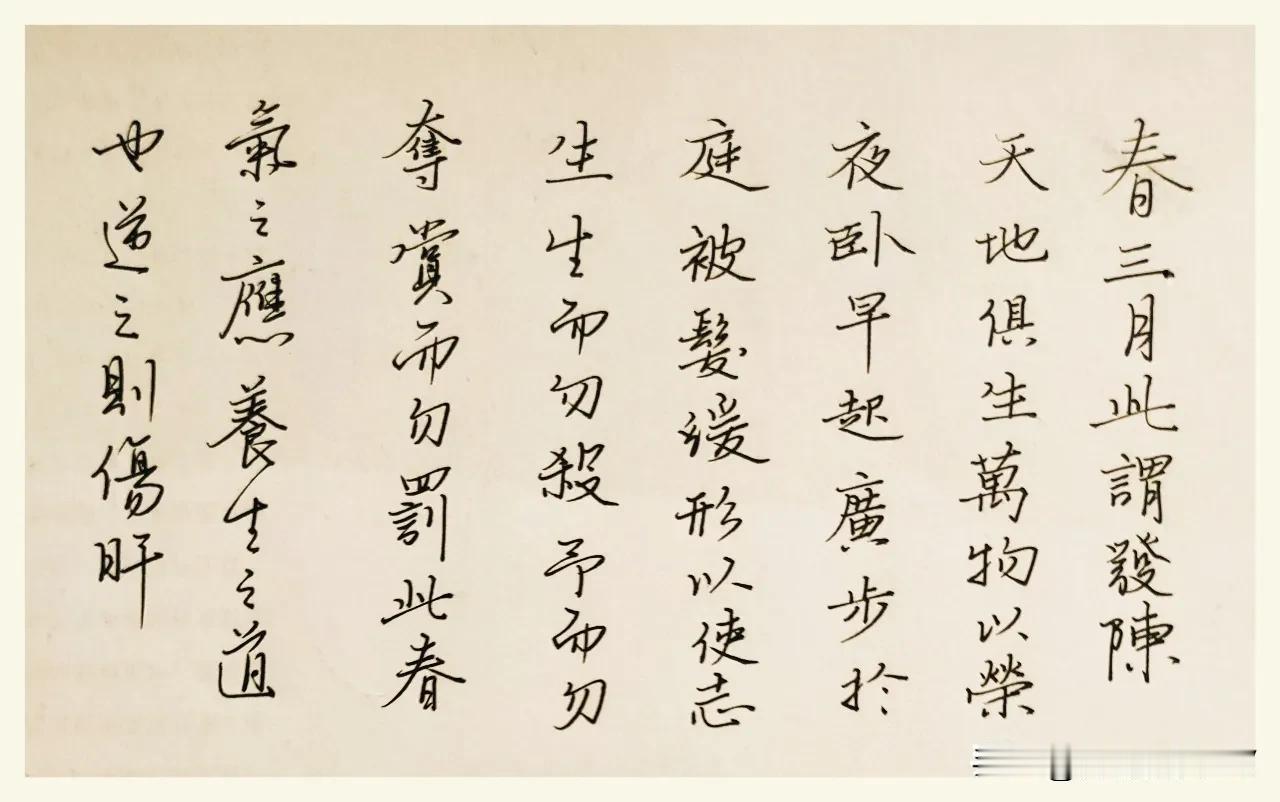 春三月此謂發陳
天地俱生萬物以榮
夜卧早起廣步於
庭被髮緩形以使志
生生而勿殺予而勿
奪賞而勿罰此春
氣之應養生之道
也逆之則傷肝